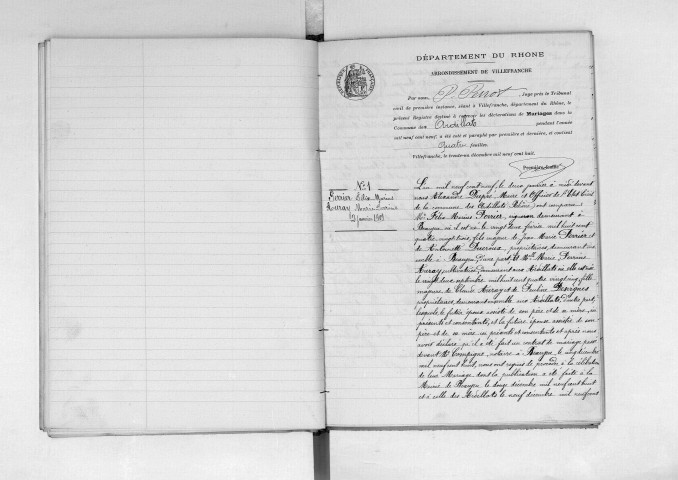 DÉPARTEMENT DU RHONE
ARRONDISSEMENT DE VILLEFRANCHE
Par nous, P. Juge près le Tribunal
civil de première instance, séant à Villefranche, département du Rhône, le
présent Registre destiné à recevoir les déclarations de Mariages dans la
Commune des Ardillats pendant l'année
mil neuf cent neuf, a été coté et paraphé par première et dernière, et contient
Quatre feuilles.
Villefranche, le trente-un décembre mil neuf cent huit.
Première feuille
N° 1
Perrier Félix Marius
Auray Marie Perrine
2 janvier 1909
L'an mil neuf cent neuf, le deux janvier à midi devant
nous Alexandre Maire et Officier de l'Etat Civil
de la commune des Ardillats Rhône, ont comparu
Mr Félix Marius Perrier, vigneron demeurant à
Beaujeu où il est né le vingt deux février mil huit cent
quatre vingt trois, fils majeur de Jean Marie Perrier et
de Ducroux, propriétaires, demeurant en-
semble à Beaujeu, d'une part, Et Mlle Marie Perrine
Auray cultivatrice, demeurant aux Ardillats où elle est née
le vingt deux septembre mil huit cent quatre vingt cinq, fille
majeure de Claude Auray et de Pauline Desvignes
propriétaires, demeurant ensemble aux Ardillats, d'autre part,
lesquels, le futur époux assisté de son père et de sa mère, ici
présents et consentants, et la future épouse assistée de son
père et de sa mère, ici présents et consentants et après nous
avoir déclaré qu'il a été fait un contrat de mariage passé
devant Me Compigne, notaire à Beaujeu, le vingt décembre
mil neuf cent huit, nous ont requis de procéder à la célébration
de leur Mariage dont la publication a été faite à la
Mairie de Beaujeu le douze décembre mil neuf cent huit
et à celle des Ardillats le neuf décembre mil neuf cent